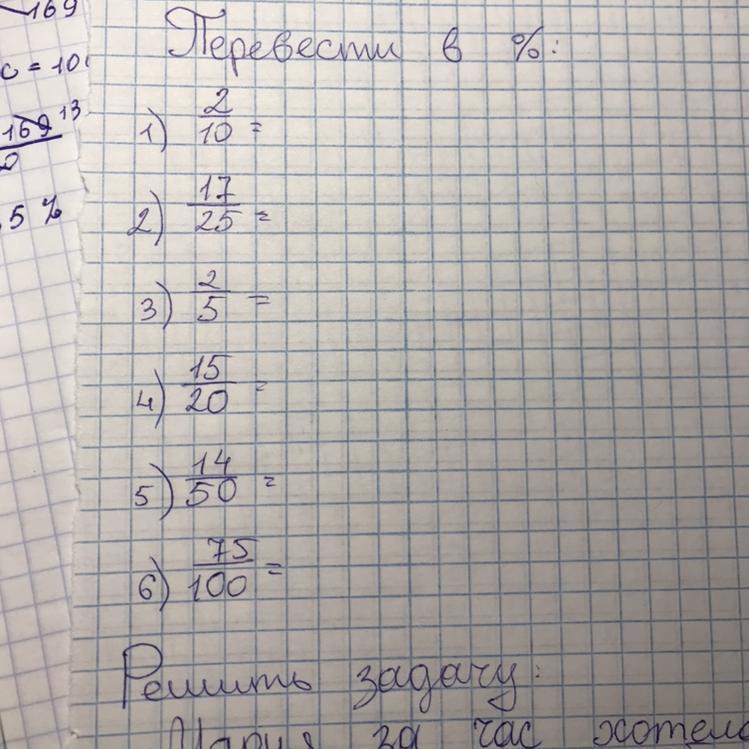 169
c = 10
169 13
5 %
Перевести в %:
1) 2/10 =
2) 17/25 =
3) 2/5 =
4) 15/20 =
5) 14/50 =
6) 75/100 =
Решить задачу:
Мария за час хотела